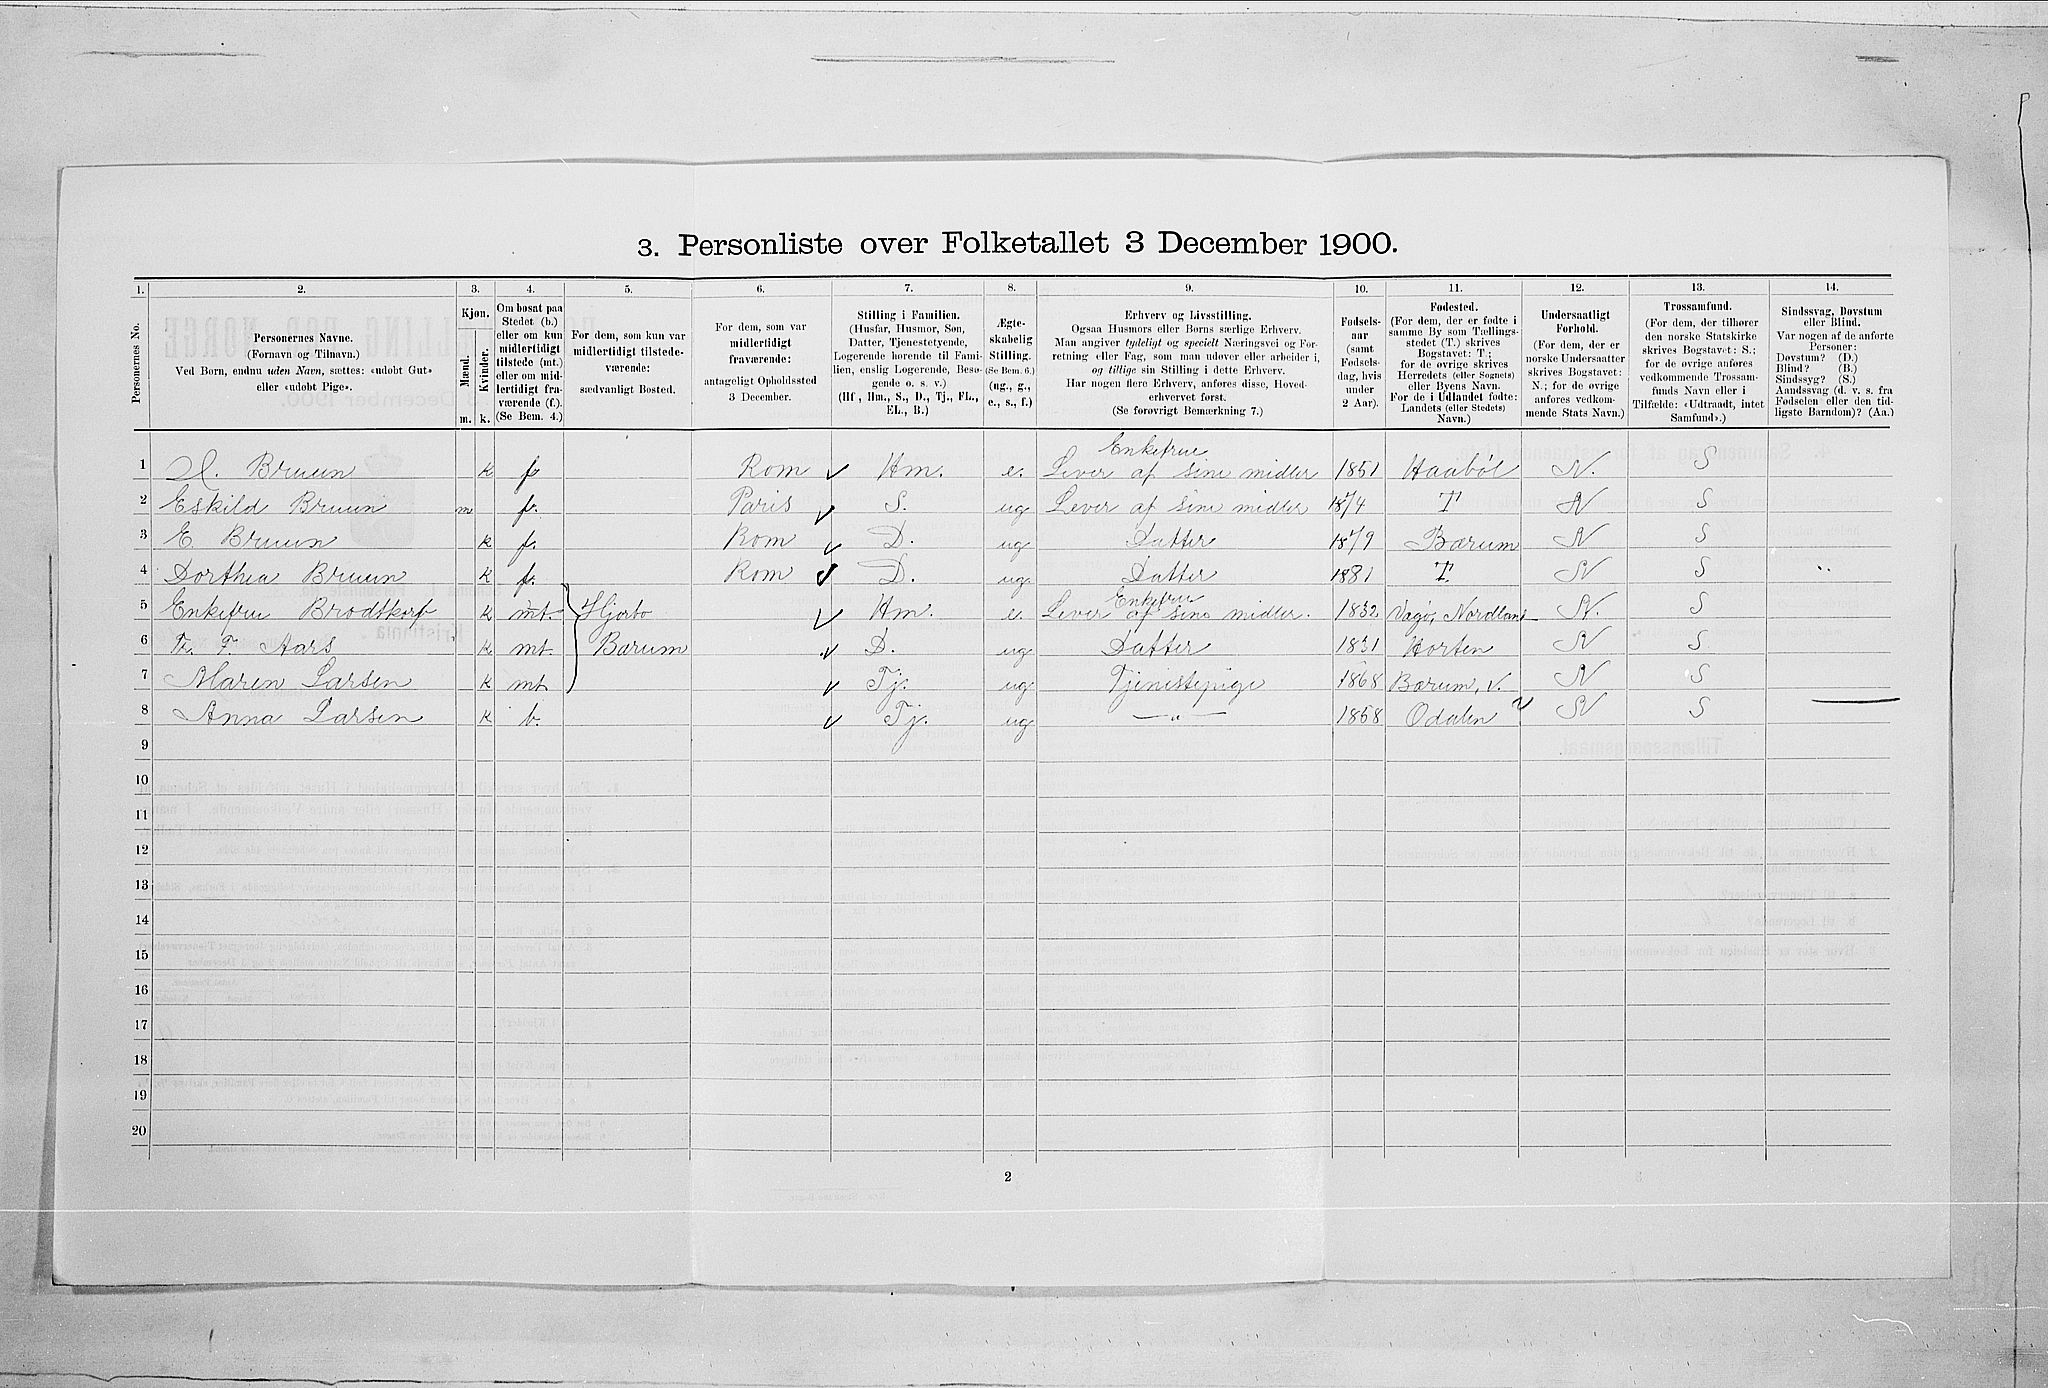 3. Personliste over Folketallet 3 December 1900.
1. 2. 3. 4. 5. 6. 7. 8. 9. 10. 11. 12. 13. 14.
Personernes No.
Personernes Navne.
(Fornavn og Tilnavn.)
Ved Børn, endnu uden Navn, sættes: «udøbt Gut»
eller «udøbt Pige».
Kjøn.
Mænd.
Kvinder.
m. k.
Om bosat paa
Stedet (b.)
eller om kun
midlertidigt
tilstede (mt.)
eller om mid-
lertidigt fra-
værende (f.).
(Se Bem. 4.)
For dem, som kun var
midlertidigt tilstede-
værende:
sædvanligt Bosted.
For dem, som var
midlertidigt
fraværende:
antageligt Opholdssted
3 December.
Stilling i Familien.
(Husfar, Husmor, Søn,
Datter, Tjenestetyende,
Logerende hørende til Fami-
lien, enslig Logerende, Besø-
gende o. s. v.)
(Hf., Hm., S., D., Tj., FL.,
EL., B.)
Ægte-
skabelig
Stilling.
(Se Bem. 6.)
(ug., g.,
e., s., f.)
Erhverv og Livsstilling.
Ogsaa Husmors eller Børns særlige Erhverv.
Man angiver tydeligt og specielt Næringsvei og For-
retning eller Fag, som man udøver eller arbeider i,
og tillige sin Stilling i dette Erhverv.
Har nogen flere Erhverv, anføres disse, Hoved-
erhvervet først.
(Se forøvrigt Bemærkning 7.)
Fødsels-
aar
(samt
Fødsels-
dag, hvis
under
2 Aar).
Fødested.
(For dem, der er fødte i
samme By som Tællings-
stedet (T.) skrives
Bogstavet: T.;
for de øvrige skrives
Herredets (eller Sognets)
eller Byens Navn.
For de i Udlandet fødte:
Landets (eller Stedets)
Navn.)
Undersaatligt
Forhold.
(For dem, der er
norske Undersaatter
skrives Bogstavet:
N.; for de øvrige
anføres vedkom-
mende Stats Navn.)
Trossamfund.
(For dem, der tilhører
den norske Statskirke
skrives Bogstavet: S.;
for de øvrige anføres
vedkommende Trossam-
funds Navn eller i
Tilfælde: «Udtraadt, intet
Samfund».)
Sindssvag, Døvstum
eller Blind.
Var nogen af de anførte
Personer:
Døvstum? (D.)
Blind? (B.)
Sindssyg? (S.)
Aandssvag (d. v. s. fra
Fødselen eller den tid-
ligste Barndom)? (Aa.)
Enkefrue
1 Bruun k f Rom Hm. e. Lever af sine midler 1851 Haabøl N. S
2 Eskild Bruun m f. Paris S. ug Lever af sine midler 1874 T N S
3 E. Bruun k f. Rom D. ug Datter 1879 Bærum N S
4 Dorthea Bruun k f. Rom D. ug. Datter 1881 T. N S
Enkefrue
5 Enkefrue Brodtkorp k mt. Hjorto Hm. e. Lever af sine midler. 1832 Vagø, Nordland N. S
6 Fr. F. Aars k mt. Bærum D. ug Datter 1831 Horten N S
7 Maren Larsen k mt Tj. ug Tjenistepige 1868 Bærum, v. N S
8 Anna Larsen k b. Tj. ug — " — 1858 Odalen N S
9
10
11
12
13
14
15
16
17
18
19
20
2